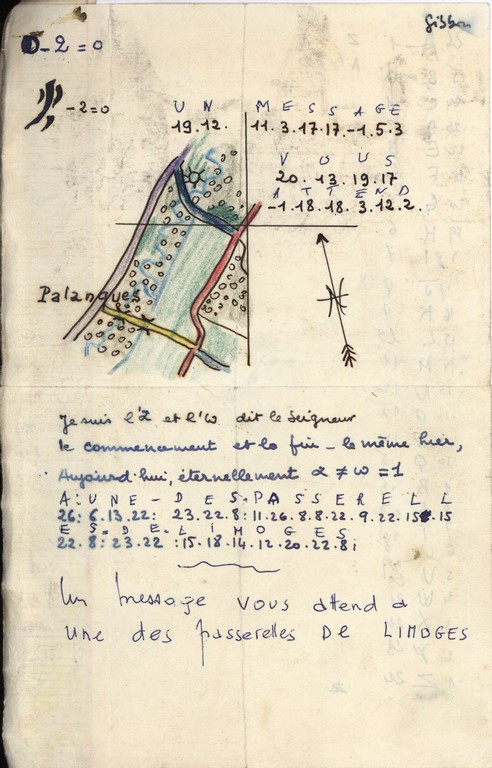 Gibbon
0-2=0
-2=0
U N M E S S A G E
19.12. 11.3.17.17.-1.5.3
V O U S
20.13.19.17
A T T E N D
-1.18.18.3.12.2.
Palanques
Je suis l'α et l'ω dit le Seigneur
le commencement et la fin - le même hier,
Aujourd'hui, éternellement α ≠ ω = 1
A: U N E - D E S - P A S S E R E L L
26: 6.13.22: 23.22.8: 11.26.8.8.22.9.22.15.15
E S - D E - L I M O G E S
22.8: 23.22 :15.18.14.12.20.22.8;
Un message vous attend a
une des passerelles DE LIMOGES